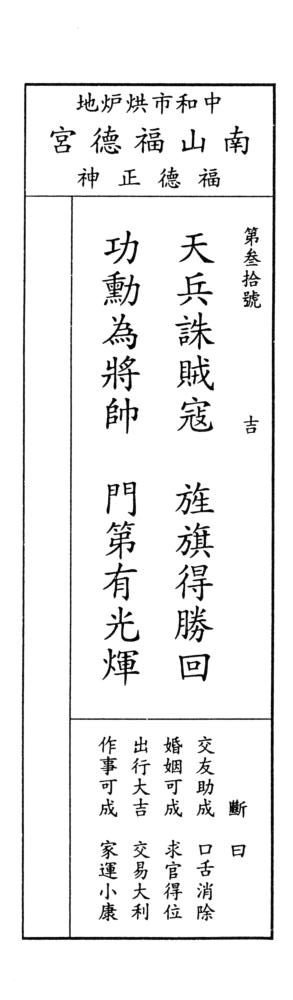 中和市烘炉地
南山福德宮
福德正神
第叁拾號 吉
天兵誅賊寇 旌旗得勝回
功勳為將帥 門第有光煇
斷曰
交友助成 口舌消除
婚姻可成 求官得位
出行大吉 交易大利
作事可成 家運小康